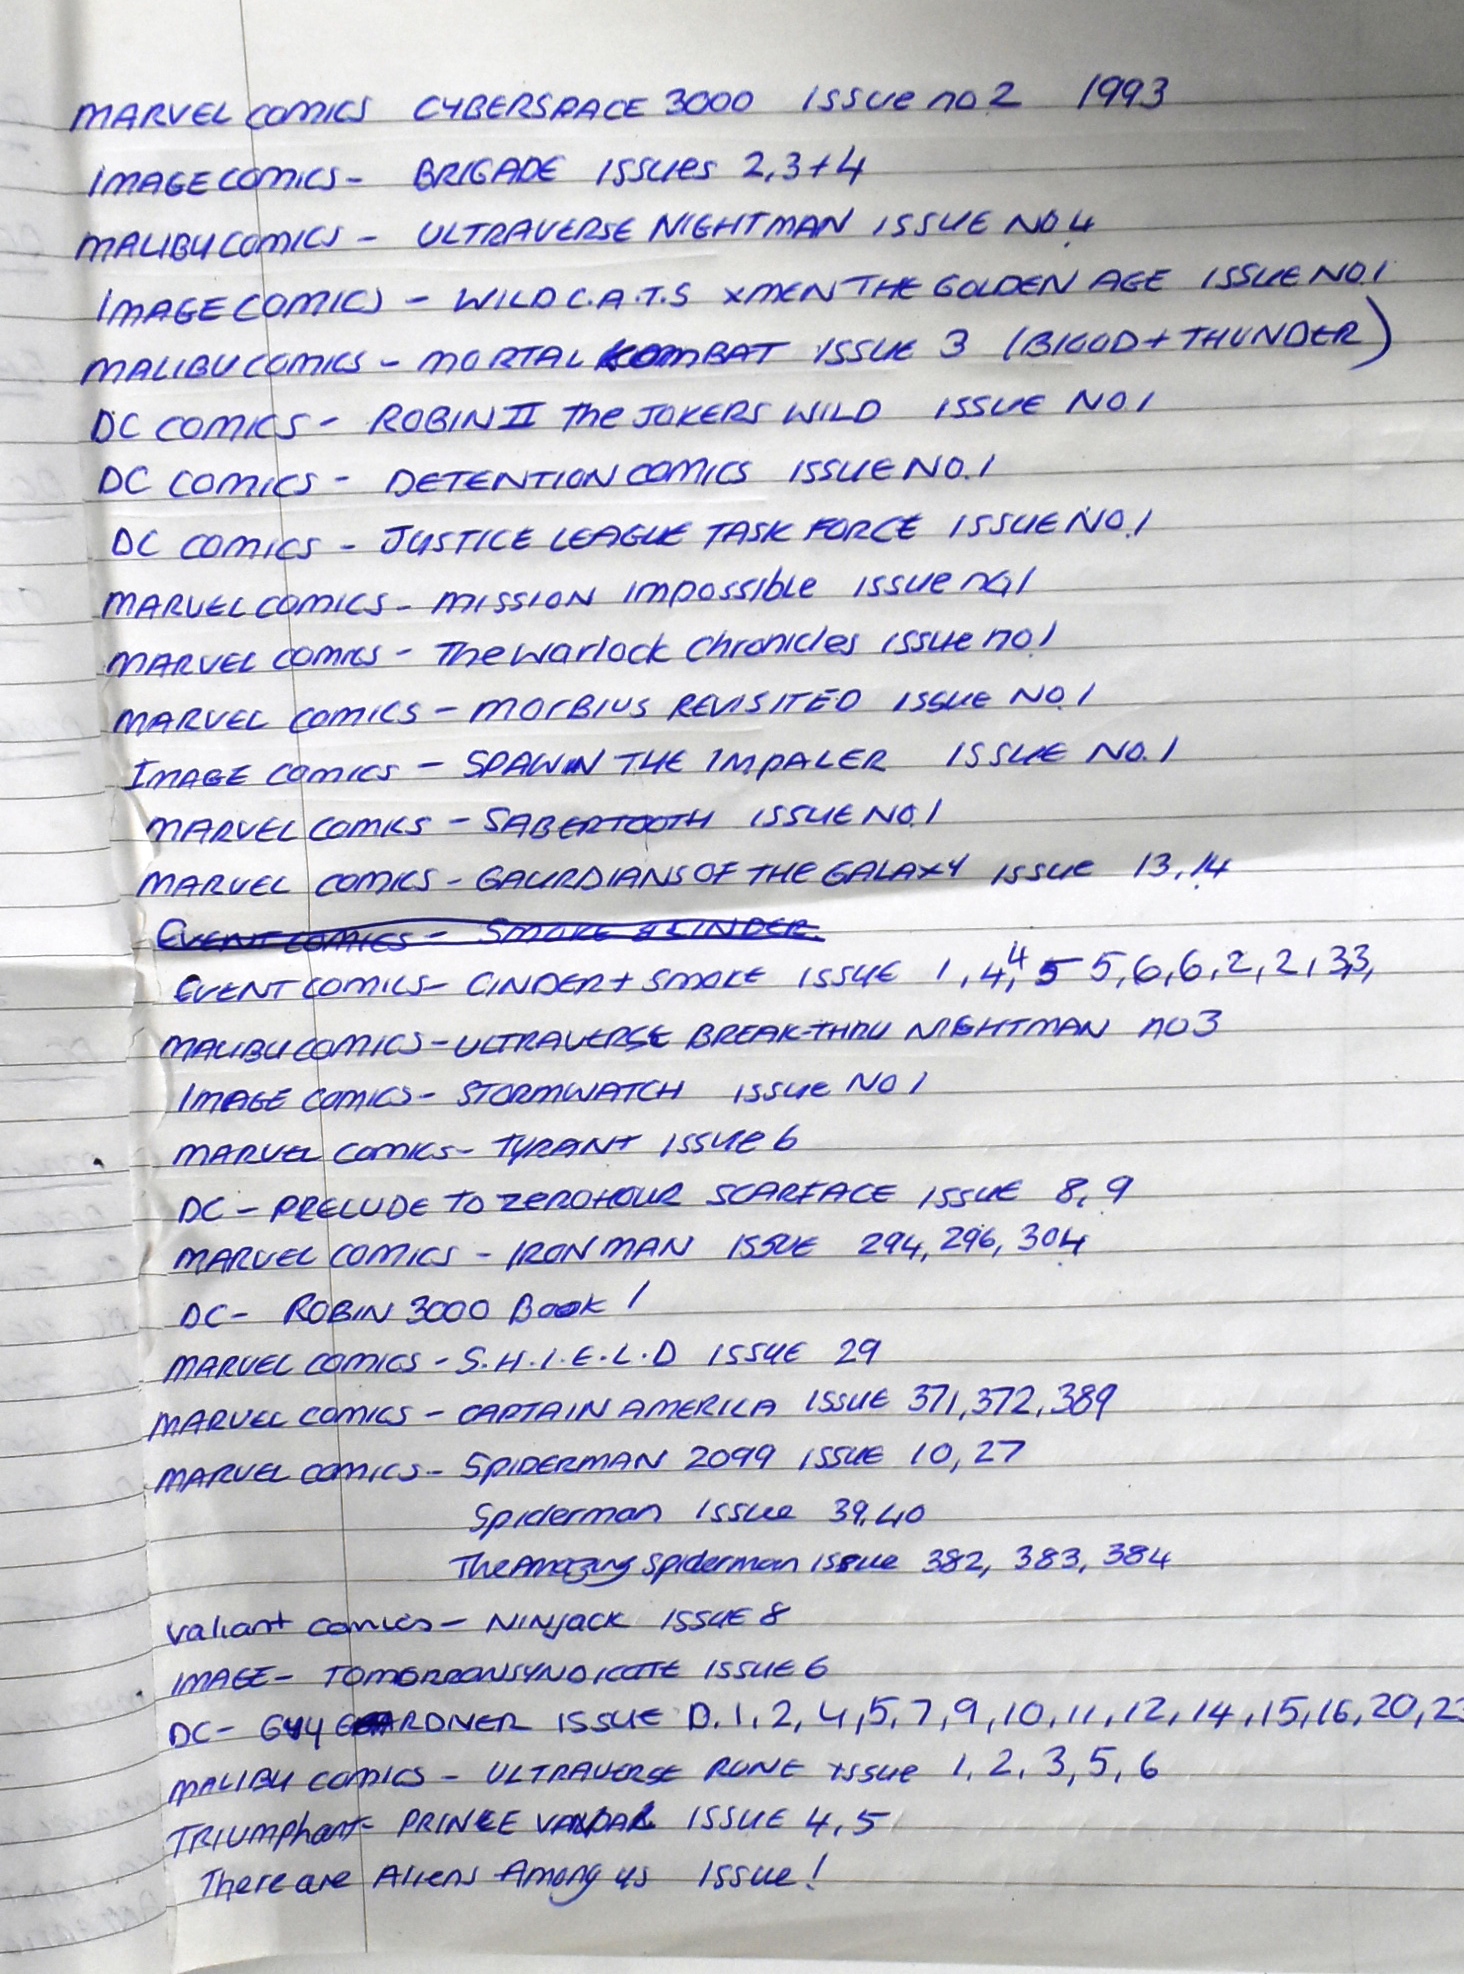 MARVEL COMICS CYBERSPACE 3000 ISSUE no 2 1993
IMAGE COMICS - BRIGADE ISSUES 2,3+4
MALIBU COMICS - ULTRAVERSE NIGHTMAN ISSUE NO.4
IMAGE COMICS - WILD C.A.T.S XMEN THE GOLDEN AGE ISSUE NO.1
MALIBU COMICS - MORTAL KOMBAT ISSUE 3 (BLOOD + THUNDER)
DC COMICS - ROBIN II The JOKERS WILD ISSUE NO.1
DC COMICS - DETENTION COMICS ISSUE NO.1
DC COMICS - JUSTICE LEAGUE TASK FORCE ISSUE NO.1
MARVEL COMICS - MISSION IMPOSSIBLE ISSUE no.1
MARVEL COMICS - The Warlock Chronicles ISSUE no.1
MARVEL COMICS - MORBIUS REVISITED ISSUE NO.1
IMAGE COMICS - SPAWN THE IMPALER ISSUE NO.1
MARVEL COMICS - SABERTOOTH ISSUE NO.1
MARVEL COMICS - GAURDIANS OF THE GALAXY ISSUE 13,14
EVENT COMICS - SMOKE & CINDER.
EVENT COMICS - CINDER + SMOKE ISSUE 1,4,4 5 5,6,6,2,2,3,3,
MALIBU COMICS - ULTRAVERSE BREAK-THRU NIGHTMAN no 3
IMAGE COMICS - STORMWATCH ISSUE NO 1
MARVEL COMICS - TYRANT ISSUE 6
DC - PRELUDE TO ZEROHOUR SCARFACE ISSUE 8,9
MARVEL COMICS - IRON MAN ISSUE 294, 296, 304
DC - ROBIN 3000 Book 1
MARVEL COMICS - S.H.I.E.L.D ISSUE 29
MARVEL COMICS - CAPTAIN AMERICA ISSUE 371,372,389
MARVEL COMICS - SPIDERMAN 2099 ISSUE 10,27
Spiderman ISSUE 39,40
The Amazing Spiderman ISSUE 382, 383, 384
Valiant comics - NINJACK ISSUE 8
IMAGE - TOMORROWSYNDICATE ISSUE 6
DC - GUY GARDNER ISSUE 0,1,2,4,5,7,9,10,11,12,14,15,16,20,23
MALIBU COMICS - ULTRAVERSE RUNE ISSUE 1,2,3,5,6
TRIUMPhant - PRINCE VANDAL ISSUE 4,5
There are Aliens Among us ISSUE 1